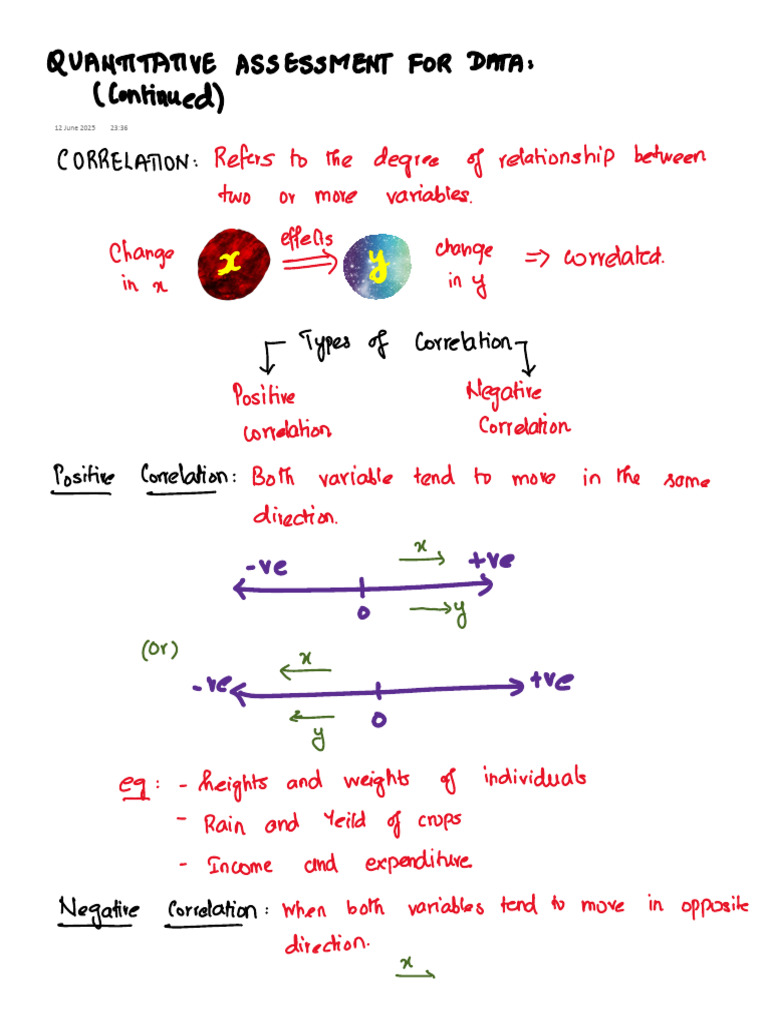 QUANTITATIVE ASSESSMENT FOR DATA:
(Continued)
12 June 2025 23:36
CORRELATION: Refers to the degree of relationship between
two or more variables.
Change in x
x
effects
y
change in y
=> correlated.
Types of Correlation
Positive correlation
Negative Correlation
Positive Correlation: Both variable tend to move in the same
direction.
x
-ve +ve
0 y
(or)
x
-ve +ve
0
y
eg: - heights and weights of individuals
- Rain and Yeild of crops
- Income and expenditure
Negative Correlation: When both variables tend to move in opposite
direction.
x